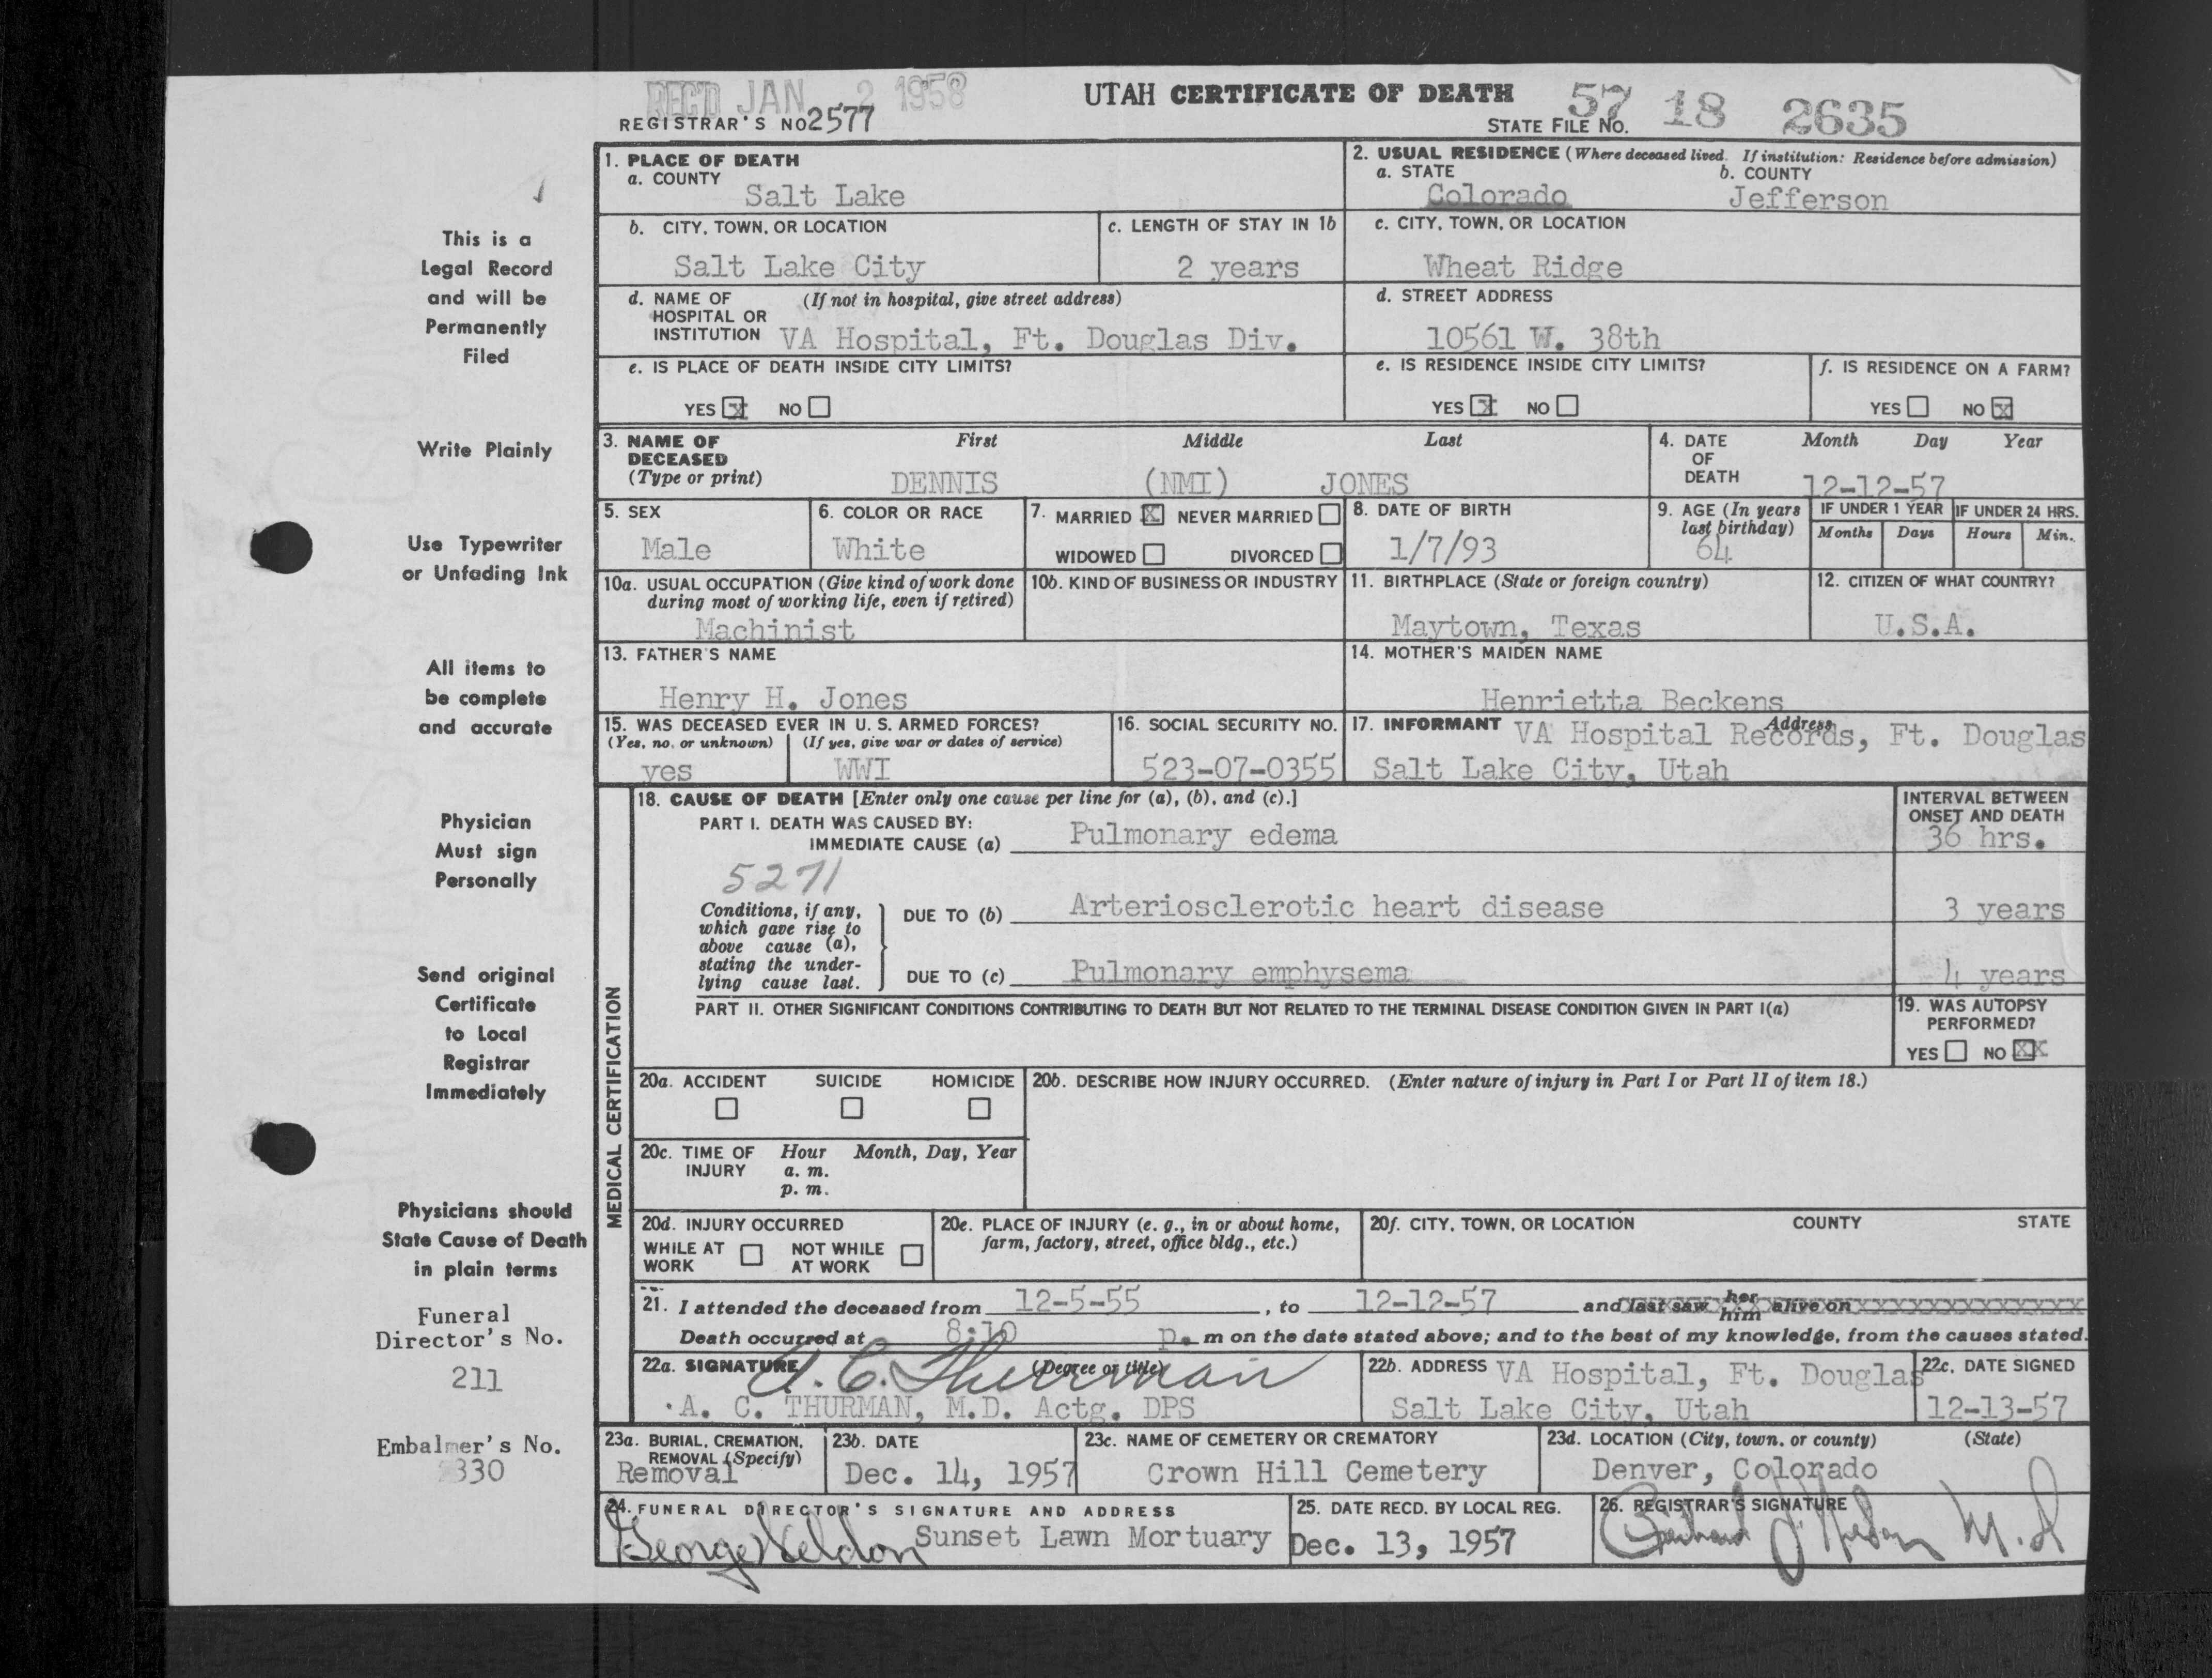 REC'D JAN 2 1958
UTAH CERTIFICATE OF DEATH
REGISTRAR'S NO 2577
STATE FILE NO. 57 18 2635
This is a
Legal Record
and will be
Permanently
Filed
Write Plainly
Use Typewriter
or Unfading Ink
All items to
be complete
and accurate
Physician
Must sign
Personally
Send original
Certificate
to Local
Registrar
Immediately
Physicians should
State Cause of Death
in plain terms
Funeral
Director's No.
211
Embalmer's No.
330
1. PLACE OF DEATH
a. COUNTY
Salt Lake
2. USUAL RESIDENCE (Where deceased lived. If institution: Residence before admission)
a. STATE b. COUNTY
Colorado Jefferson
b. CITY, TOWN, OR LOCATION
Salt Lake City
c. LENGTH OF STAY IN 1b
2 years
c. CITY, TOWN, OR LOCATION
Wheat Ridge
d. NAME OF (If not in hospital, give street address)
HOSPITAL OR
INSTITUTION VA Hospital, Ft. Douglas Div.
d. STREET ADDRESS
10561 W. 38th
e. IS PLACE OF DEATH INSIDE CITY LIMITS?
YES X NO
e. IS RESIDENCE INSIDE CITY LIMITS?
YES X NO
f. IS RESIDENCE ON A FARM?
YES NO X
3. NAME OF First Middle Last
DECEASED
(Type or print) DENNIS (NMI) JONES
4. DATE Month Day Year
OF
DEATH 12-12-57
5. SEX
Male
6. COLOR OR RACE
White
7. MARRIED X NEVER MARRIED
WIDOWED DIVORCED
8. DATE OF BIRTH
1/7/93
9. AGE (In years
last birthday)
64
IF UNDER 1 YEAR IF UNDER 24 HRS.
Months Days Hours Min.
10a. USUAL OCCUPATION (Give kind of work done
during most of working life, even if retired)
Machinist
10b. KIND OF BUSINESS OR INDUSTRY
11. BIRTHPLACE (State or foreign country)
Maytown, Texas
12. CITIZEN OF WHAT COUNTRY?
U.S.A.
13. FATHER'S NAME
Henry H. Jones
14. MOTHER'S MAIDEN NAME
Henrietta Beckens
15. WAS DECEASED EVER IN U. S. ARMED FORCES?
(Yes, no, or unknown) (If yes, give war or dates of service)
yes WWI
16. SOCIAL SECURITY NO.
523-07-0355
17. INFORMANT Address
VA Hospital Records, Ft. Douglas
Salt Lake City, Utah
MEDICAL CERTIFICATION
18. CAUSE OF DEATH [Enter only one cause per line for (a), (b), and (c).]
PART I. DEATH WAS CAUSED BY:
IMMEDIATE CAUSE (a) Pulmonary edema
INTERVAL BETWEEN
ONSET AND DEATH
36 hrs.
5271
Conditions, if any,
which gave rise to
above cause (a),
stating the under-
lying cause last.
DUE TO (b) Arteriosclerotic heart disease 3 years
DUE TO (c) Pulmonary emphysema 4 years
PART II. OTHER SIGNIFICANT CONDITIONS CONTRIBUTING TO DEATH BUT NOT RELATED TO THE TERMINAL DISEASE CONDITION GIVEN IN PART I(a)
19. WAS AUTOPSY
PERFORMED?
YES NO XX
20a. ACCIDENT SUICIDE HOMICIDE
20b. DESCRIBE HOW INJURY OCCURRED. (Enter nature of injury in Part I or Part II of item 18.)
20c. TIME OF Hour Month, Day, Year
INJURY a. m.
p. m.
20d. INJURY OCCURRED
WHILE AT NOT WHILE
WORK AT WORK
20e. PLACE OF INJURY (e. g., in or about home,
farm, factory, street, office bldg., etc.)
20f. CITY, TOWN, OR LOCATION COUNTY STATE
21. I attended the deceased from 12-5-55, to 12-12-57 and last saw her him alive on XXXXXXXXXXXXXXXXX
Death occurred at 8:10 p. m on the date stated above; and to the best of my knowledge, from the causes stated.
22a. SIGNATURE (Degree or title)
A. C. Thurman
A. C. THURMAN, M.D. Actg. DPS
22b. ADDRESS VA Hospital, Ft. Douglas
Salt Lake City, Utah
22c. DATE SIGNED
12-13-57
23a. BURIAL, CREMATION,
REMOVAL (Specify)
Removal
23b. DATE
Dec. 14, 1957
23c. NAME OF CEMETERY OR CREMATORY
Crown Hill Cemetery
23d. LOCATION (City, town, or county) (State)
Denver, Colorado
24. FUNERAL DIRECTOR'S SIGNATURE AND ADDRESS
George Sunset Lawn Mortuary
25. DATE RECD. BY LOCAL REG.
Dec. 13, 1957
26. REGISTRAR'S SIGNATURE
M.D